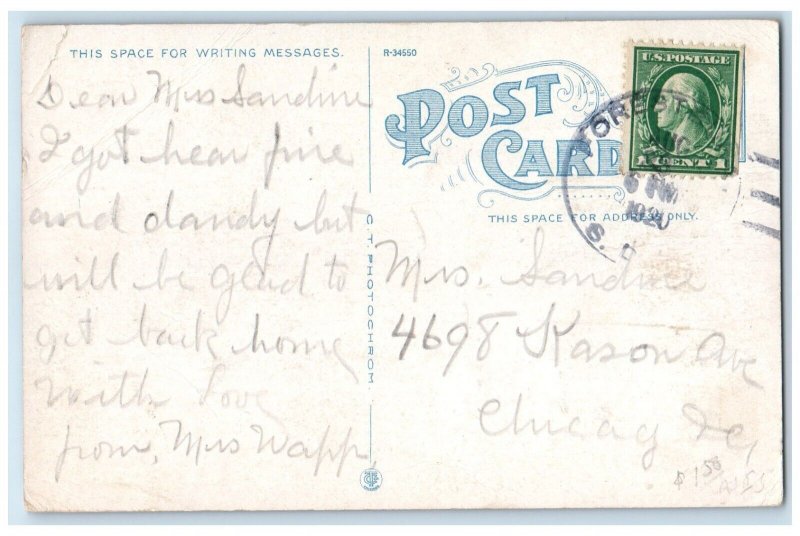 THIS SPACE FOR WRITING MESSAGES.
Dear Mrs Sandine
I got hear fine
and dandy but
will be glad to
get back home
with love
from, Mrs Wapp.
C.T. PHOTOCHROM
R-34550
POST
CARD
U.S. POSTAGE
1 CENT 1
6 PM
1920
S. D
THIS SPACE FOR ADDRESS ONLY.
Mrs. Sandine
4698 Kason Ave
Chicag
$1.50